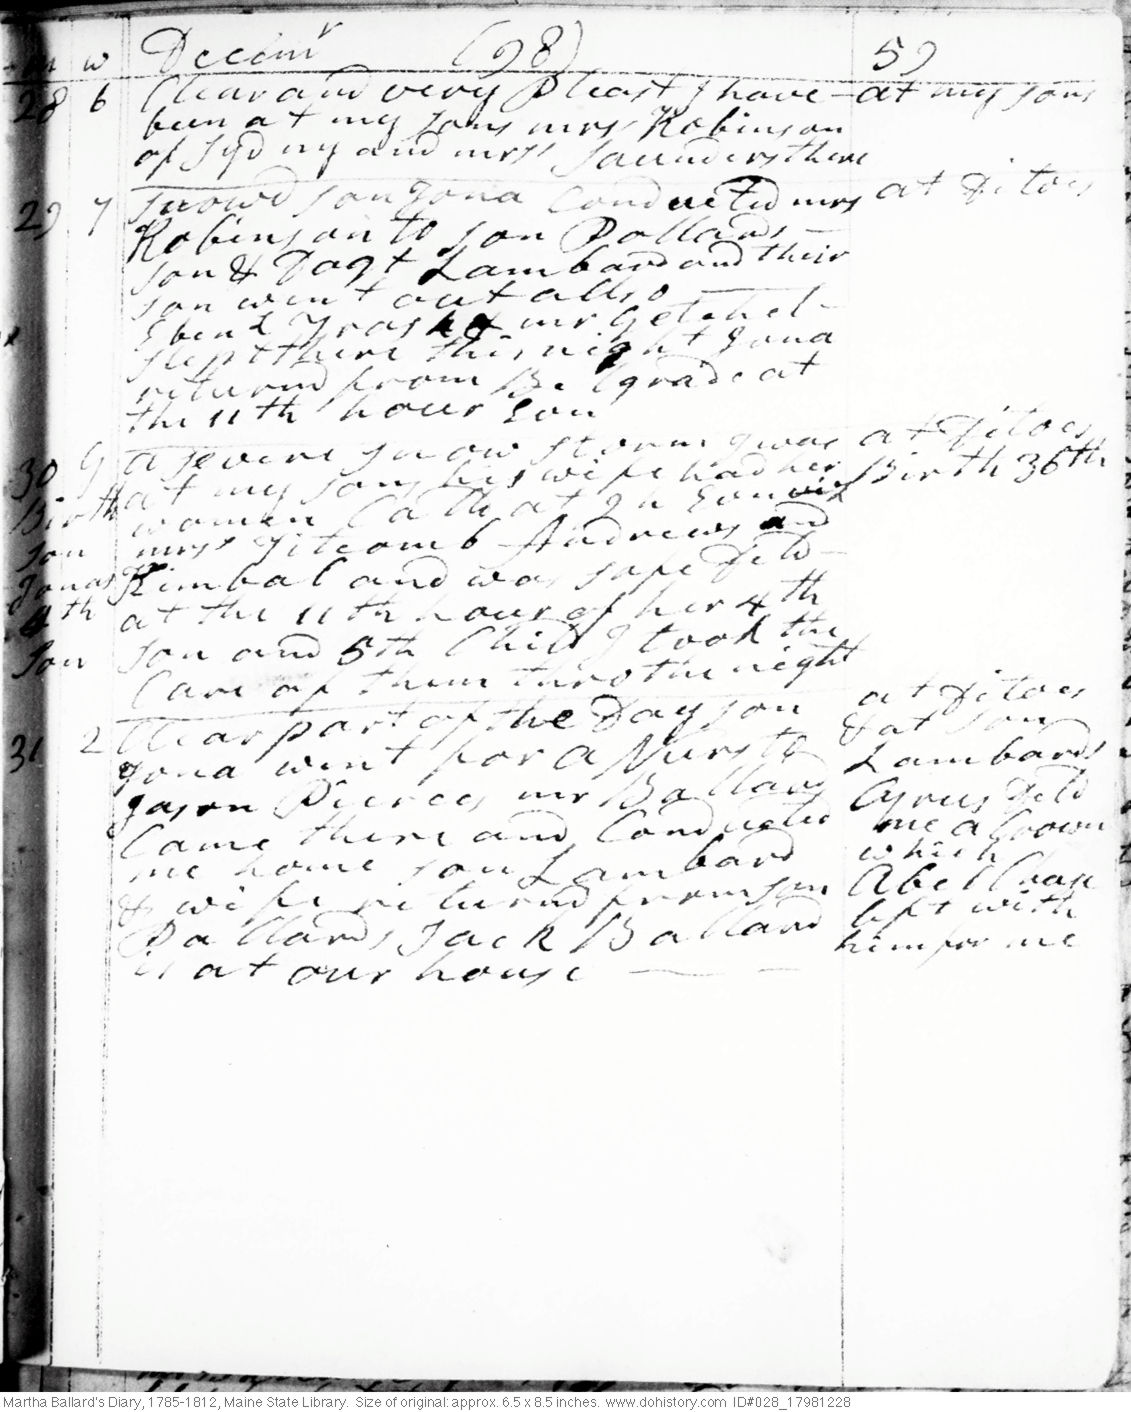 m w Decemr (98) 59
28 6 Clear and very Pleast I have at my sons
been at my sons mrs Robinson
of Sydny and mrs Saunders there
29 7 snowd son Jona Conducted mrs at Ditoes
Robinson to son Pollards
son & Dagt Lambard and their
son went out allso
Ebenz Trask & mr Getchel
slept there this night Jona
returnd from Belgrade at
the 11th hour Evn
30 G a severe snow storm I was at Ditoes
at my sons his wife had her Birth 36th
Birth women Calld at 9 h Evn viz
son mrs Titcomb Andrews and
Jonas Kimbal and was safe Deld
4th at the 11th hour of her 4th
son son and 5th Child I took the
Care of them thro the night
31 2 Clear part of the Day son at Ditoes
Jona went for a Nurs to & at son
Jason Pierces mr Ballard Lambards
Came there and Conducted Cyrus Deld
me home son Lambard me a Crown
& wife returnd from son which
Pollards Jack Ballard Abel Cross
is at our house left with
him for me
Martha Ballard's Diary, 1785-1812, Maine State Library. Size of original: approx. 6.5 x 8.5 inches. www.dohistory.com ID#028_17981228